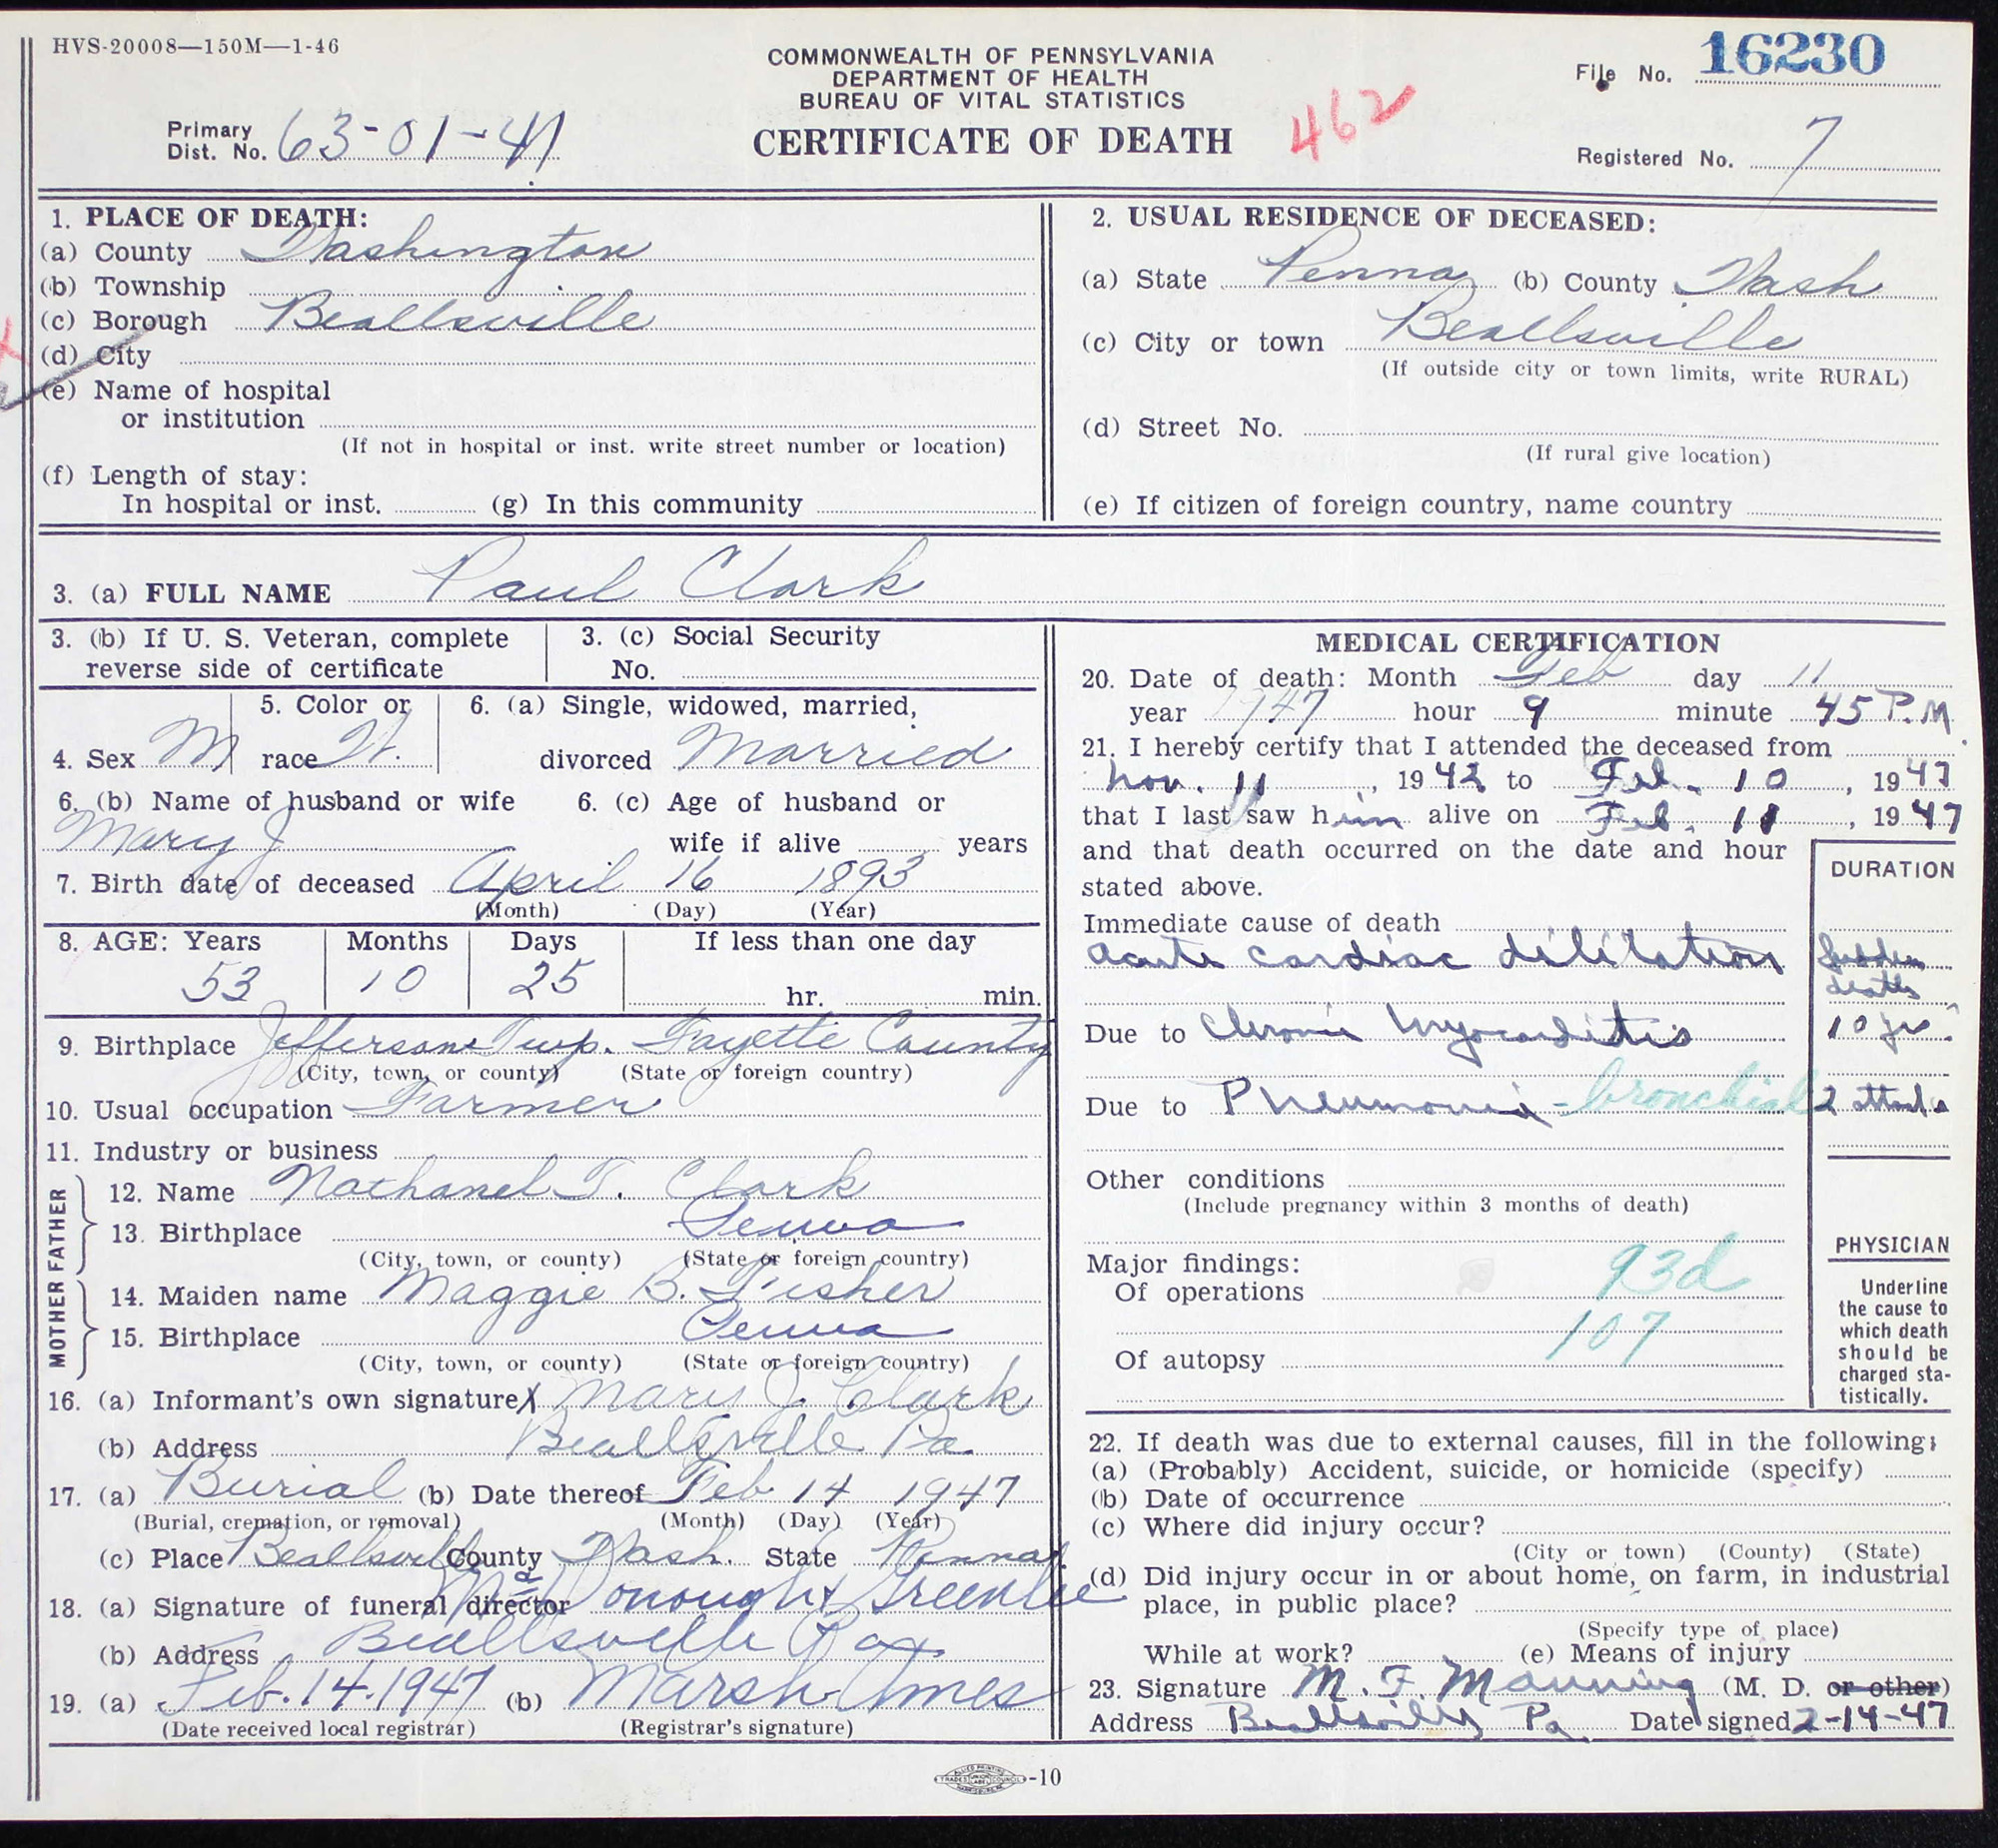 HVS-20008—150M—1-46
COMMONWEALTH OF PENNSYLVANIA
DEPARTMENT OF HEALTH
BUREAU OF VITAL STATISTICS
CERTIFICATE OF DEATH
462
File No. 16230
Primary
Dist. No. 63-01-41
Registered No. 7
1. PLACE OF DEATH:
(a) County Washington
(b) Township
(c) Borough Beallsville
(d) City
(e) Name of hospital
or institution
(If not in hospital or inst. write street number or location)
(f) Length of stay:
In hospital or inst. (g) In this community
2. USUAL RESIDENCE OF DECEASED:
(a) State Penna (b) County Wash
(c) City or town Beallsville
(If outside city or town limits, write RURAL)
(d) Street No.
(If rural give location)
(e) If citizen of foreign country, name country
3. (a) FULL NAME Paul Clark
3. (b) If U. S. Veteran, complete
reverse side of certificate
3. (c) Social Security
No.
4. Sex M
5. Color or
race W.
6. (a) Single, widowed, married,
divorced Married
6. (b) Name of husband or wife
Mary J
6. (c) Age of husband or
wife if alive years
7. Birth date of deceased April 16 1893
(Month) (Day) (Year)
8. AGE: Years Months Days If less than one day
53 10 25 hr. min.
9. Birthplace Jefferson Twp. Fayette County
(City, town, or county) (State or foreign country)
10. Usual occupation Farmer
11. Industry or business
FATHER
12. Name Nathanel T. Clark
13. Birthplace Penna
(City, town, or county) (State or foreign country)
MOTHER
14. Maiden name Maggie B. Fisher
15. Birthplace Penna
(City, town, or county) (State or foreign country)
16. (a) Informant's own signature X Mary J. Clark
(b) Address Beallsville Pa
17. (a) Burial (b) Date thereof Feb 14 1947
(Burial, cremation, or removal) (Month) (Day) (Year)
(c) Place Beallsville County Wash. State Penna
18. (a) Signature of funeral director McDonough & Greenlee
(b) Address Beallsville Pa
19. (a) Feb. 14. 1947 (b) Marsh Ames
(Date received local registrar) (Registrar's signature)
MEDICAL CERTIFICATION
20. Date of death: Month Feb day 11
year 1947 hour 9 minute 45 P.M.
21. I hereby certify that I attended the deceased from
Nov. 11, 1942 to Feb. 10, 1947
that I last saw him alive on Feb. 11, 1947
and that death occurred on the date and hour
stated above.
DURATION
Immediate cause of death
acute cardiac dilitation Sudden
death
Due to Chronic Myocarditis 10 yrs.
Due to Pneumonia - bronchial 2 attacks
Other conditions
(Include pregnancy within 3 months of death)
Major findings:
Of operations 93d
107
Of autopsy
PHYSICIAN
Underline
the cause to
which death
should be
charged sta-
tistically.
22. If death was due to external causes, fill in the following:
(a) (Probably) Accident, suicide, or homicide (specify)
(b) Date of occurrence
(c) Where did injury occur?
(City or town) (County) (State)
(d) Did injury occur in or about home, on farm, in industrial
place, in public place?
(Specify type of place)
While at work? (e) Means of injury
23. Signature M. F. Manning (M. D. or other)
Address Beallsville Pa Date signed 2-14-47
-10